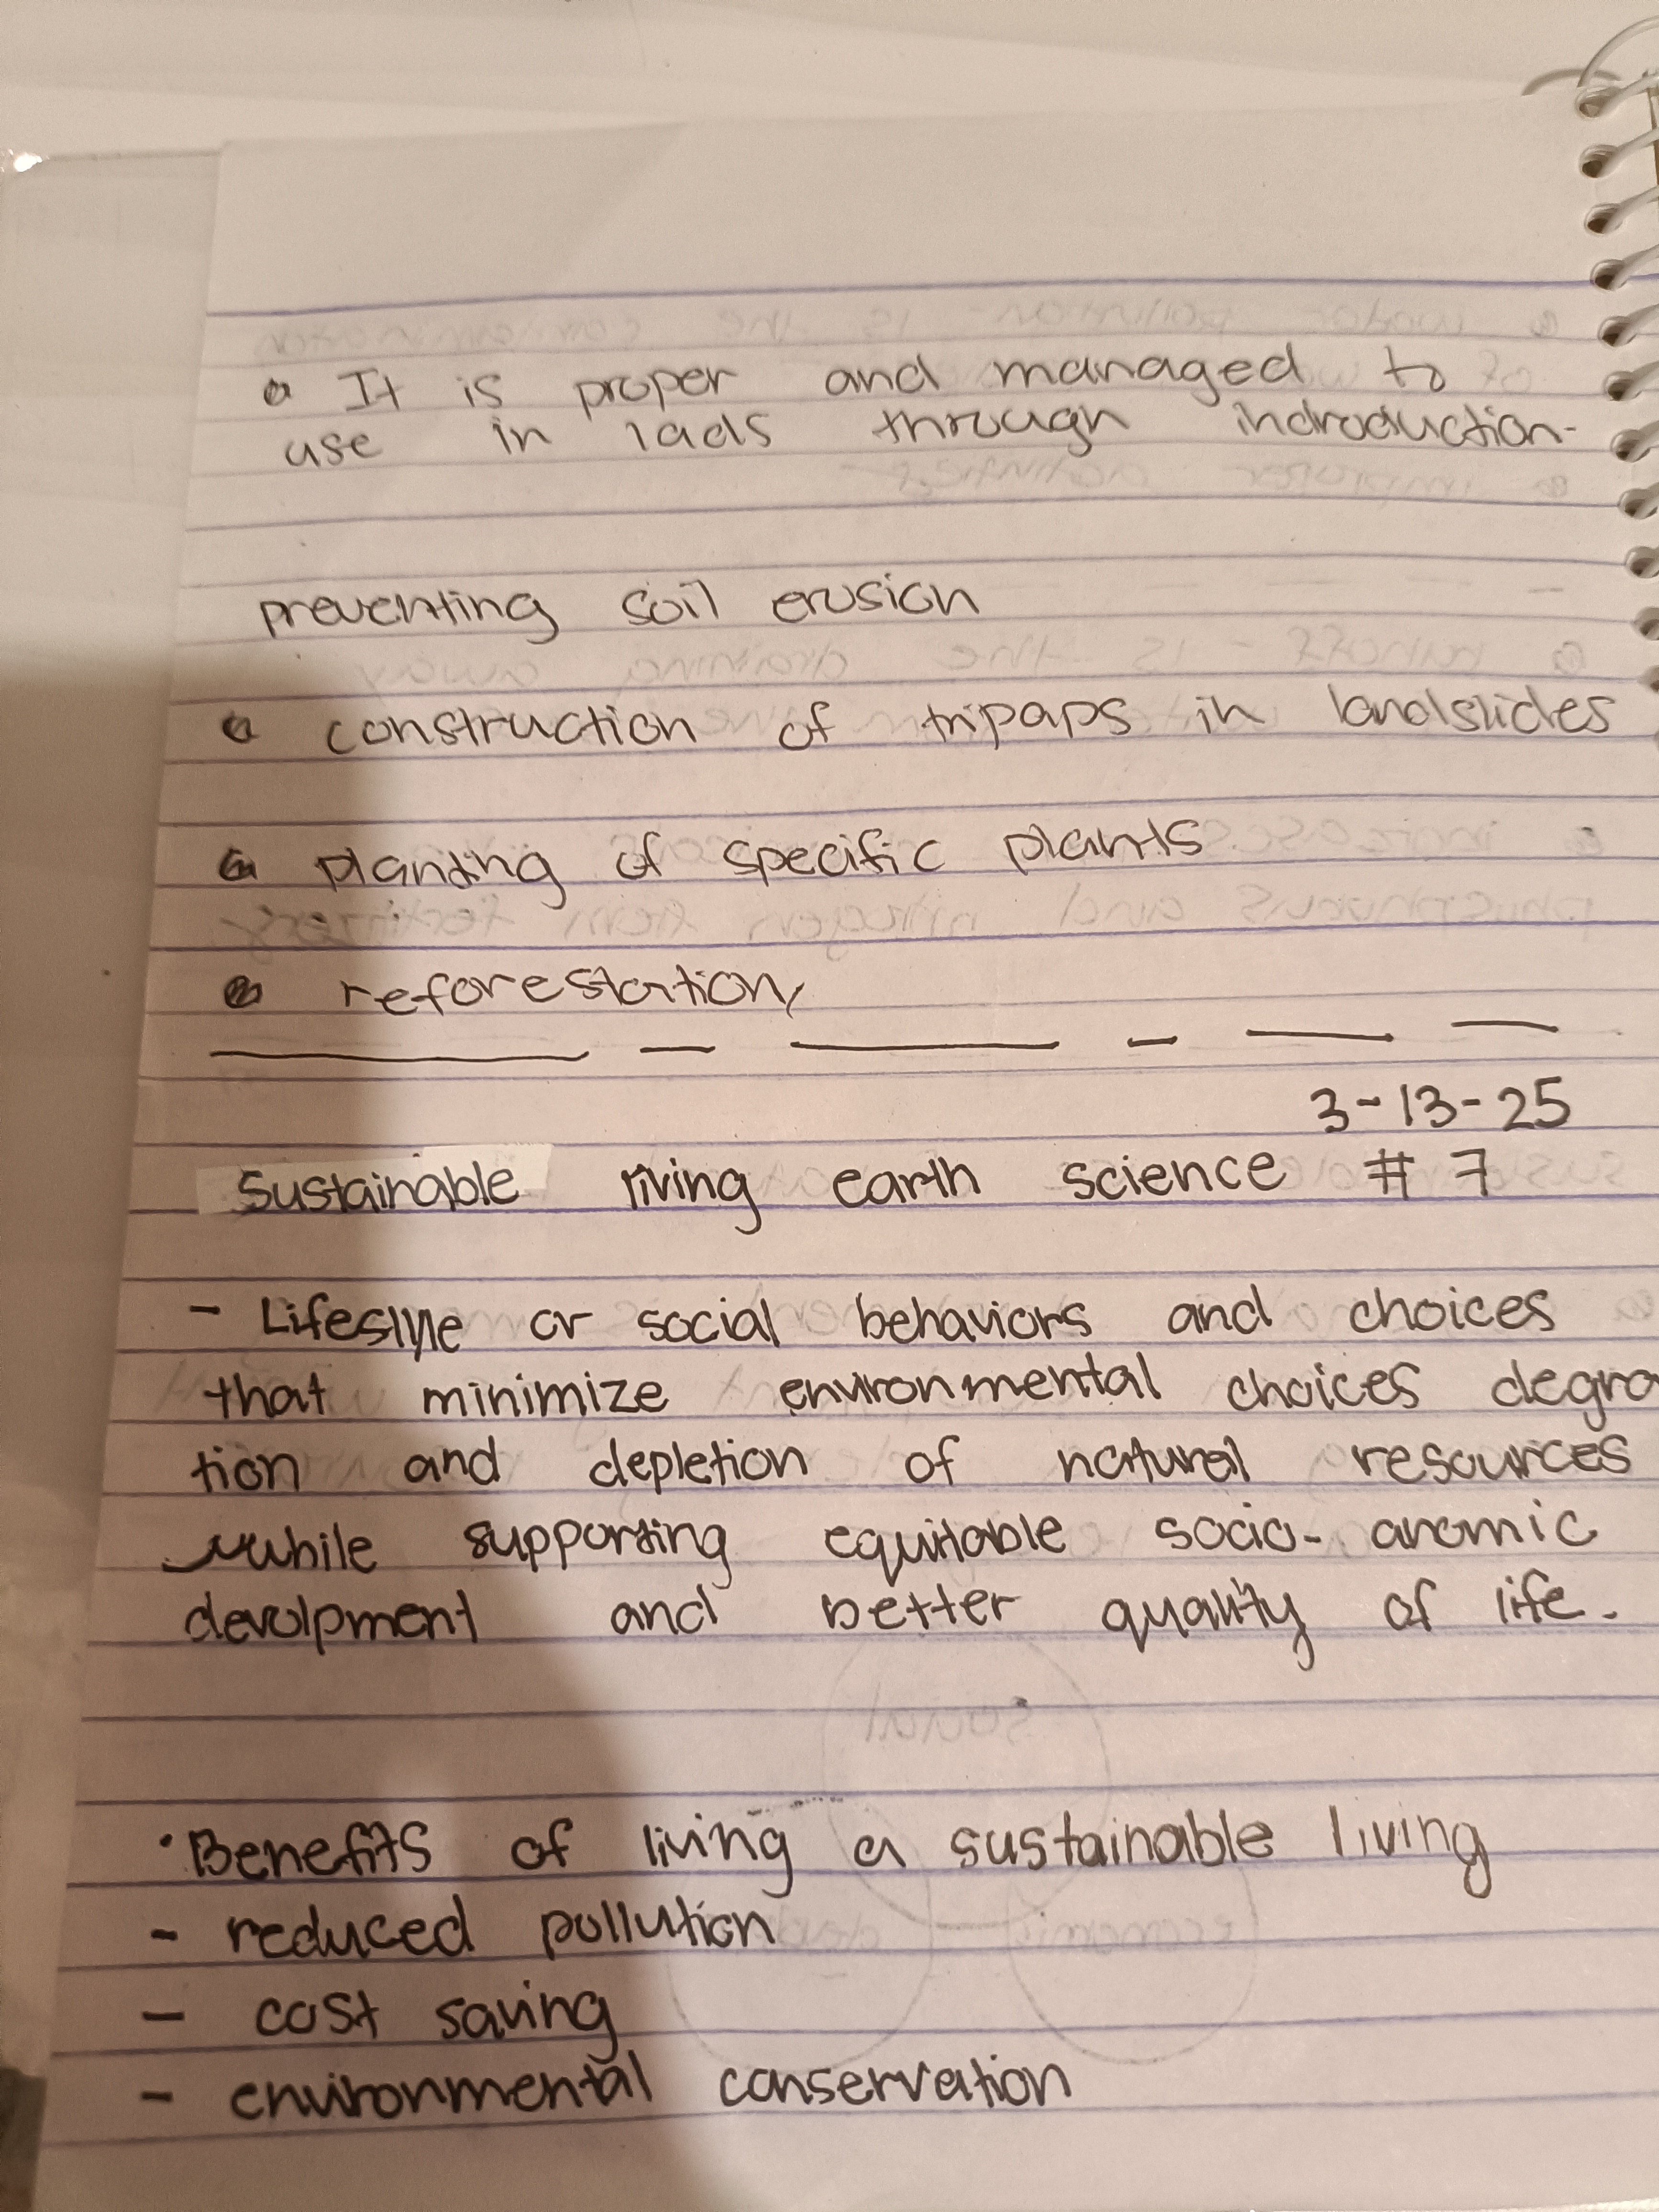 • It is proper and managed to
use in lads through indroduction-
preventing soil erosion
• construction of tripaps in landslides
• planting of specific plants
• reforestation,
3-13-25
Sustainable living earth science # 7
- Lifeslyle or social behaviors and choices
that minimize environmental choices degra
tion and depletion of natural resources
while supporting equitable socio- anomic
devolpment and better quality of life.
• Benefits of living a sustainable living
- reduced pollution
- cost saving
- environmental conservation